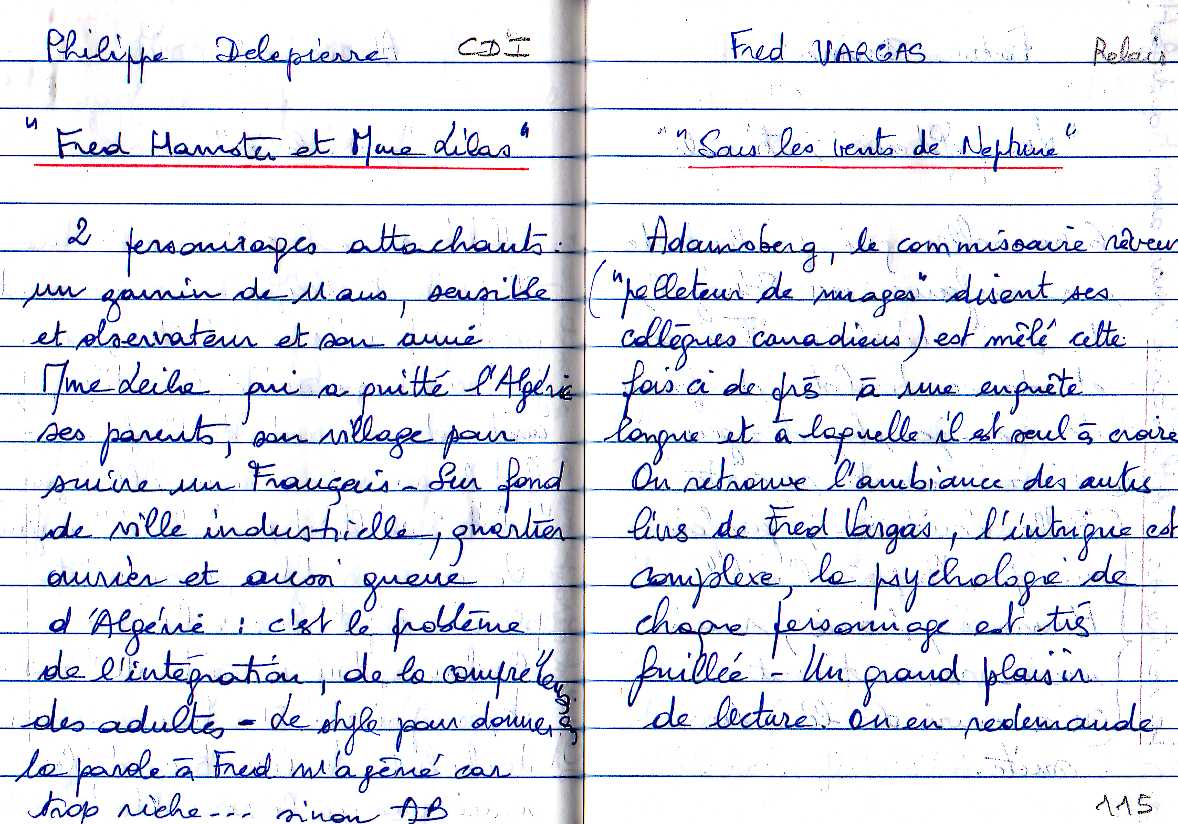 Philippe Delepierre CDI
"Fred Hamster et Mme Lilas"
2 personnages attachants :
un gamin de 11 ans, sensible
et observateur et son amie
Mme Leila qui a quitté l'Algérie
ses parents, son village pour
suivre un Français - Sur fond
de ville industrielle, quartier
ouvrier et aussi guerre
d'Algérie : c'est le problème
de l'intégration, de la compréhension
des adultes - Le style pour donner
la parole à Fred m'a gêné car
trop riche... sinon AB
Fred VARGAS Relais
"Sous les vents de Neptune"
Adamsberg, le commissaire rêveur
("pelleteur de nuages" disent ses
collègues canadiens) est mêlé cette
fois ci de près à une enquête
longue et à laquelle il est seul à croire
On retrouve l'ambiance des autres
livres de Fred Vargas, l'intrigue est
complexe, la psychologie de
chaque personnage est très
fouillée - Un grand plaisir
de lecture. On en redemande
115